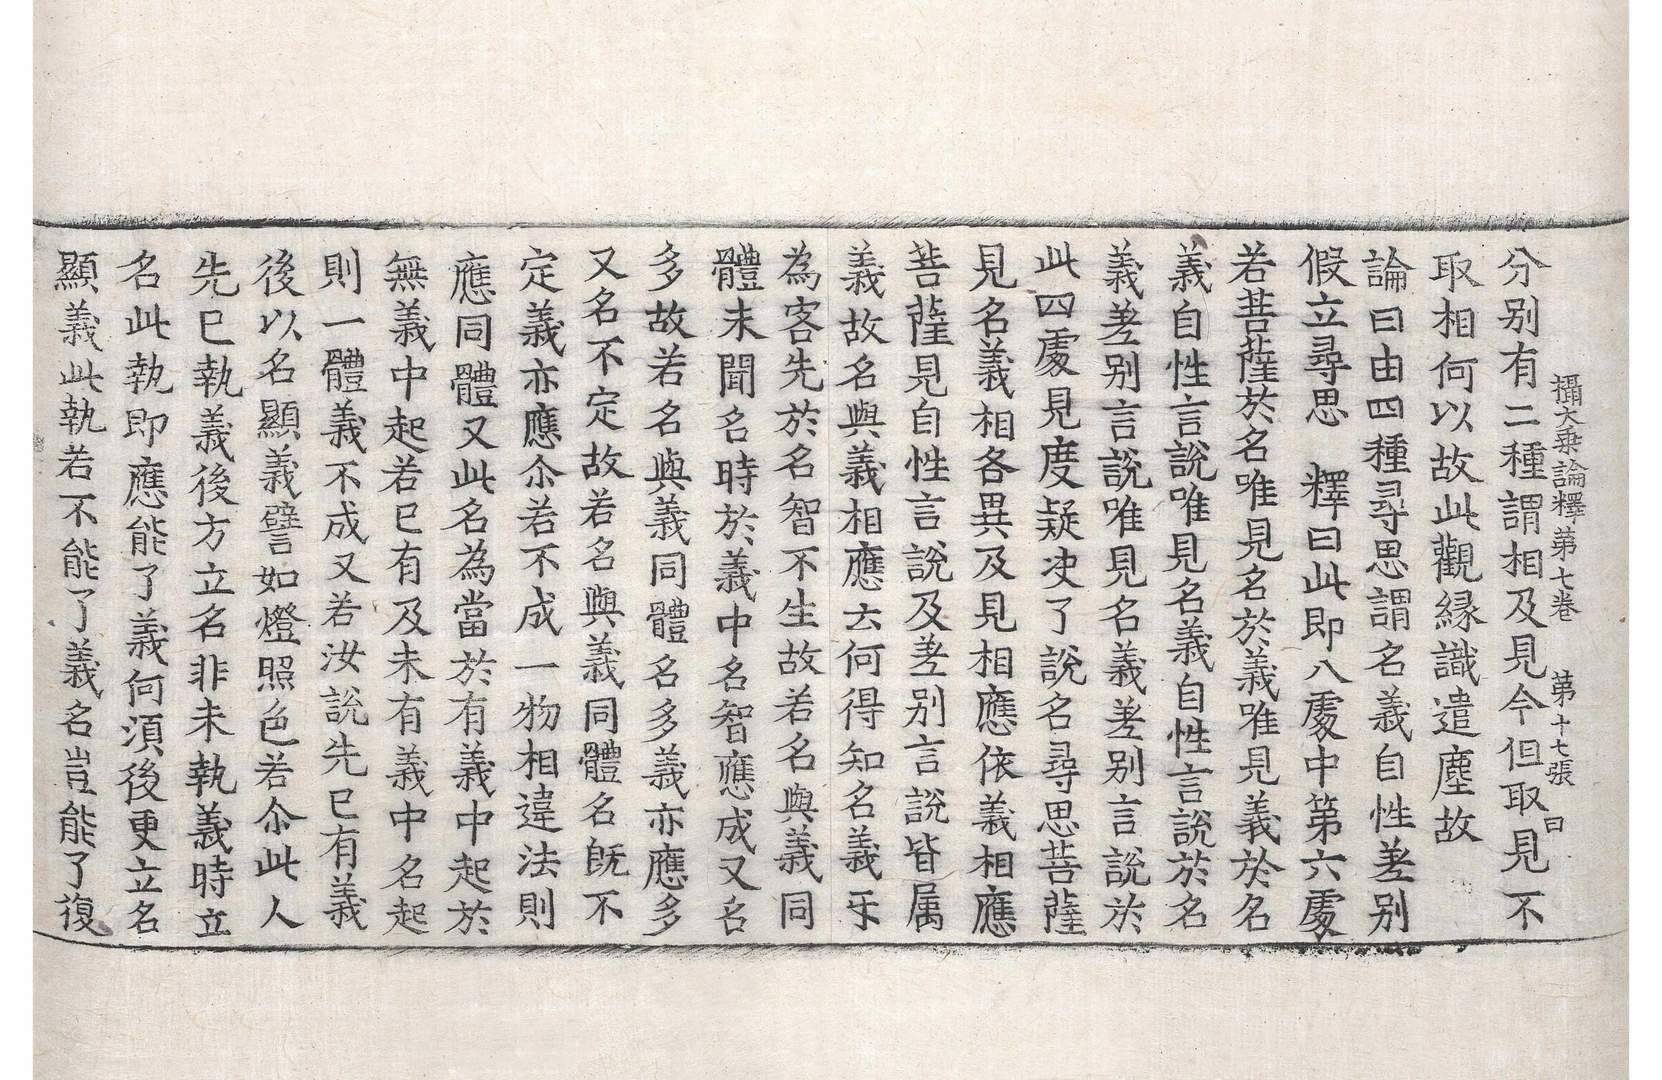 攝大乗論釋第七卷　第十七張　曰
分别有二種謂相及見今但取見不
取相何以故此觀縁識遣塵故
論曰由四種尋思謂名義自性差别
假立尋思　釋曰此即八處中第六處
若菩薩於名唯見名於義唯見義於名
義自性言說唯見名義自性言說於名
義差别言說唯見名義差别言說於
此四處見度疑决了說名尋思菩薩
見名義相各異及見相應依義相應
菩薩見自性言說及差别言說皆属
義故名與義相應云何得知名義𤓰
為客先於名智不生故若名與義同
體未聞名時於義中名智應成又名
多故若名與義同體名多義亦應多
又名不定故若名與義同體名既不
定義亦應尒若不成一物相違法則
應同體又此名為當於有義中起於
無義中起若已有及未有義中名起
則一體義不成又若汝說先已有義
後以名顯義譬如燈照色若尒此人
先已執義後方立名非未執義時立
名此執即應能了義何須後更立名
顯義此執若不能了義名豈能了復